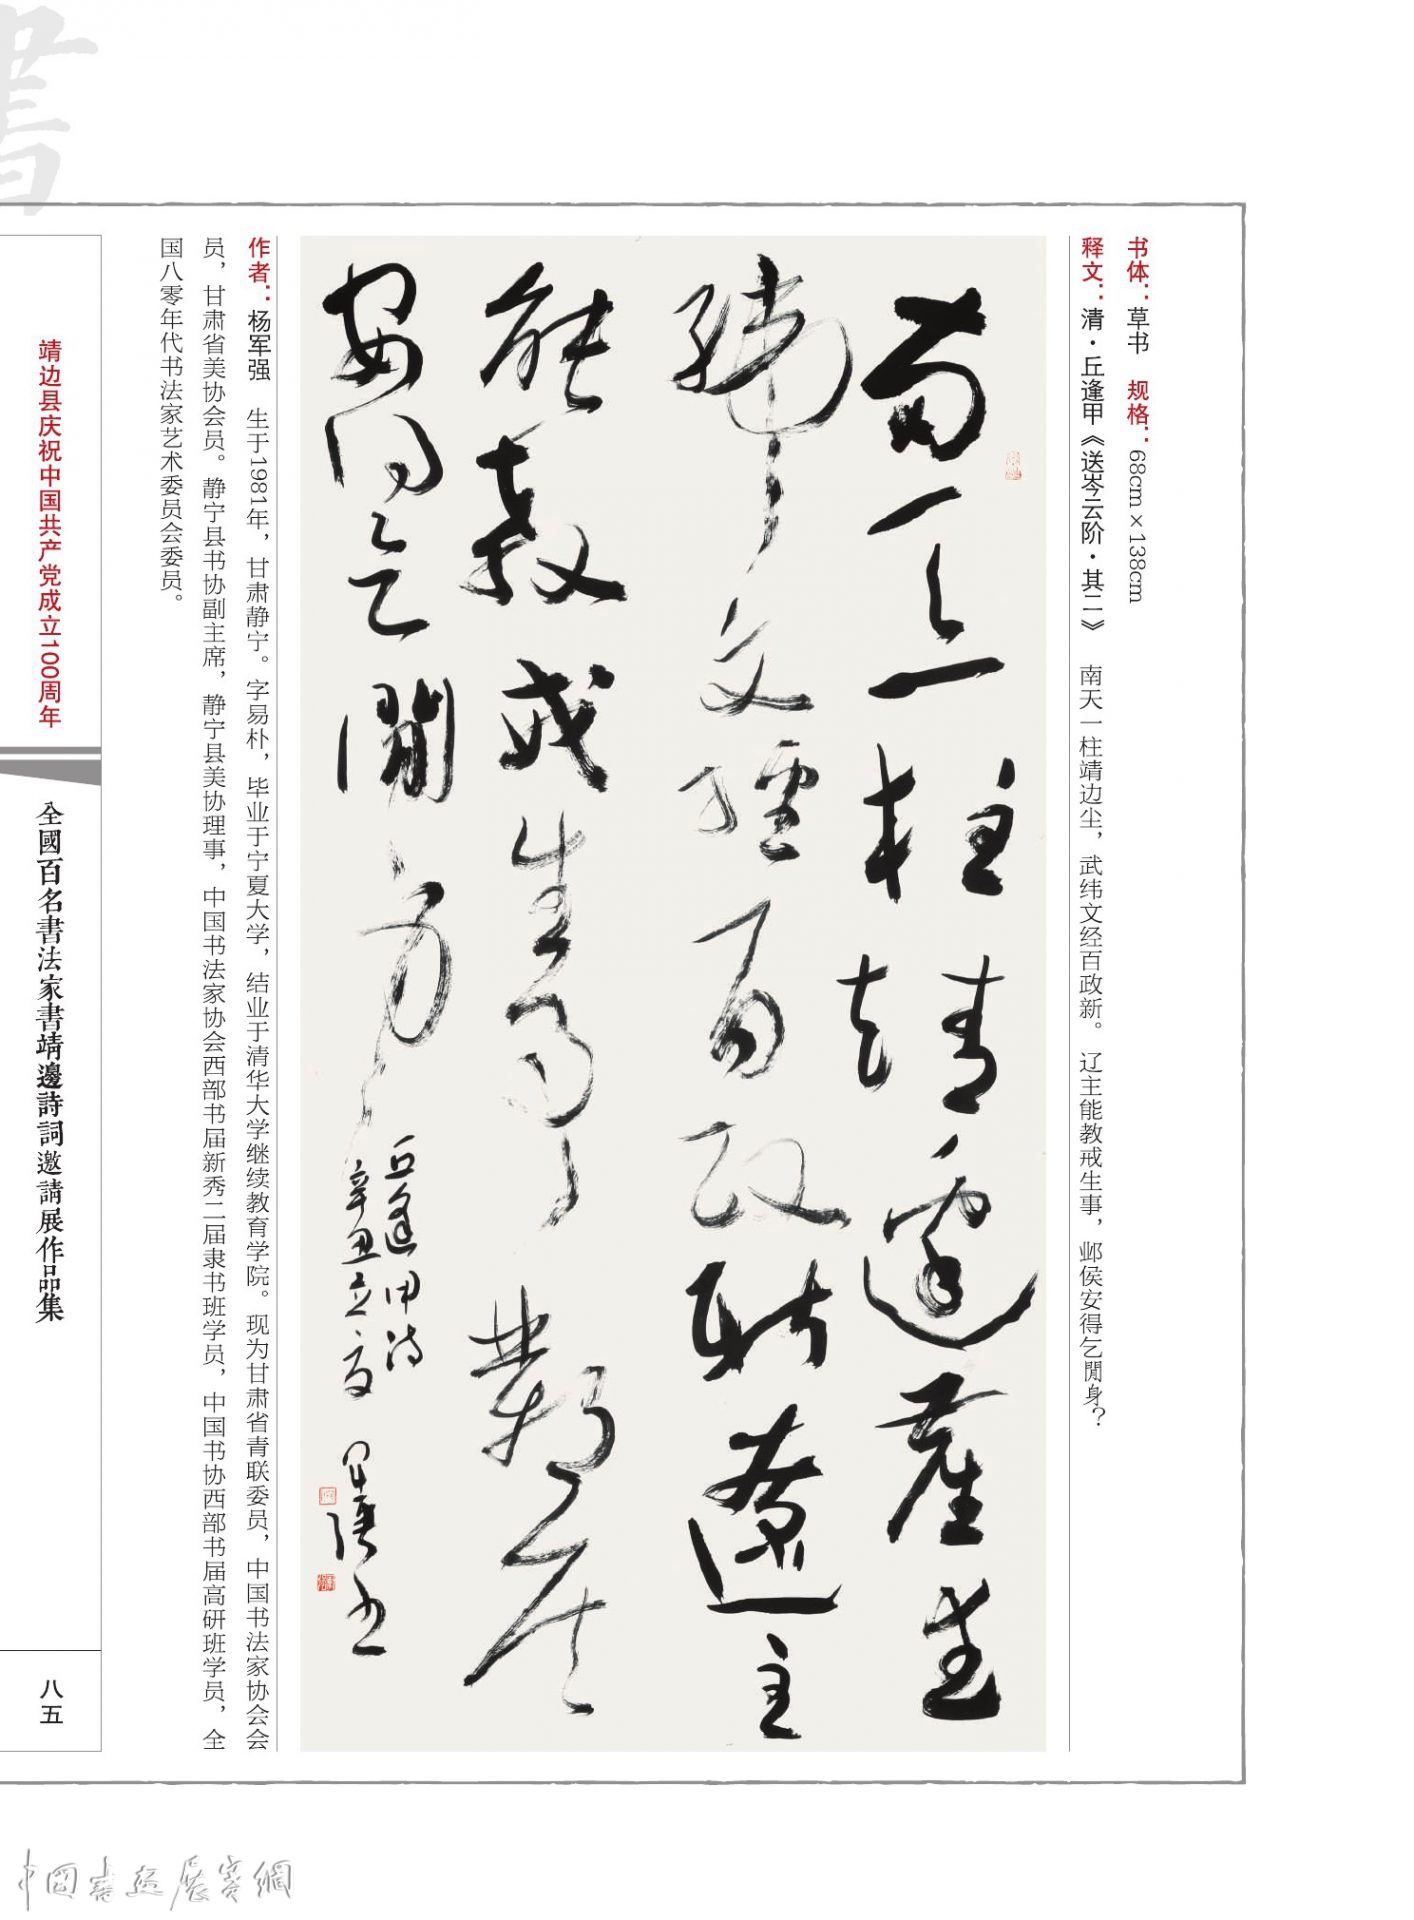 書
书体：草书 规格：68cm×138cm
释文：清·丘逢甲《送岑云阶·其二》 南天一柱靖边尘，武纬文经百政新。辽主能教戒生事，邺侯安得乞閒身？
南天一柱靖邊塵武
緯文經百政新遼主
能教戒生事鄴侯
安得乞閒身
丘逢甲詩
辛丑立夏 軍強书
作者：杨军强 生于1981年，甘肃静宁。字易朴，毕业于宁夏大学，结业于清华大学继续教育学院。现为甘肃省青联委员，中国书法家协会会
员，甘肃省美协会员。静宁县书协副主席，静宁县美协理事，中国书法家协会西部书届新秀二届隶书班学员，中国书协西部书届高研班学员，全
国八零年代书法家艺术委员会委员。
靖边县庆祝中国共产党成立100周年
全國百名書法家書靖邊詩詞邀請展作品集
八五
中國書畫展賽網